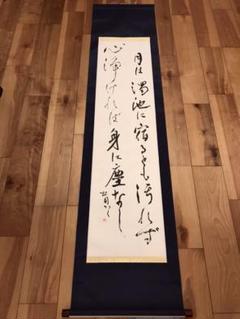 月は濁池に宿るとも汚れず
心浄ければ身に塵なし